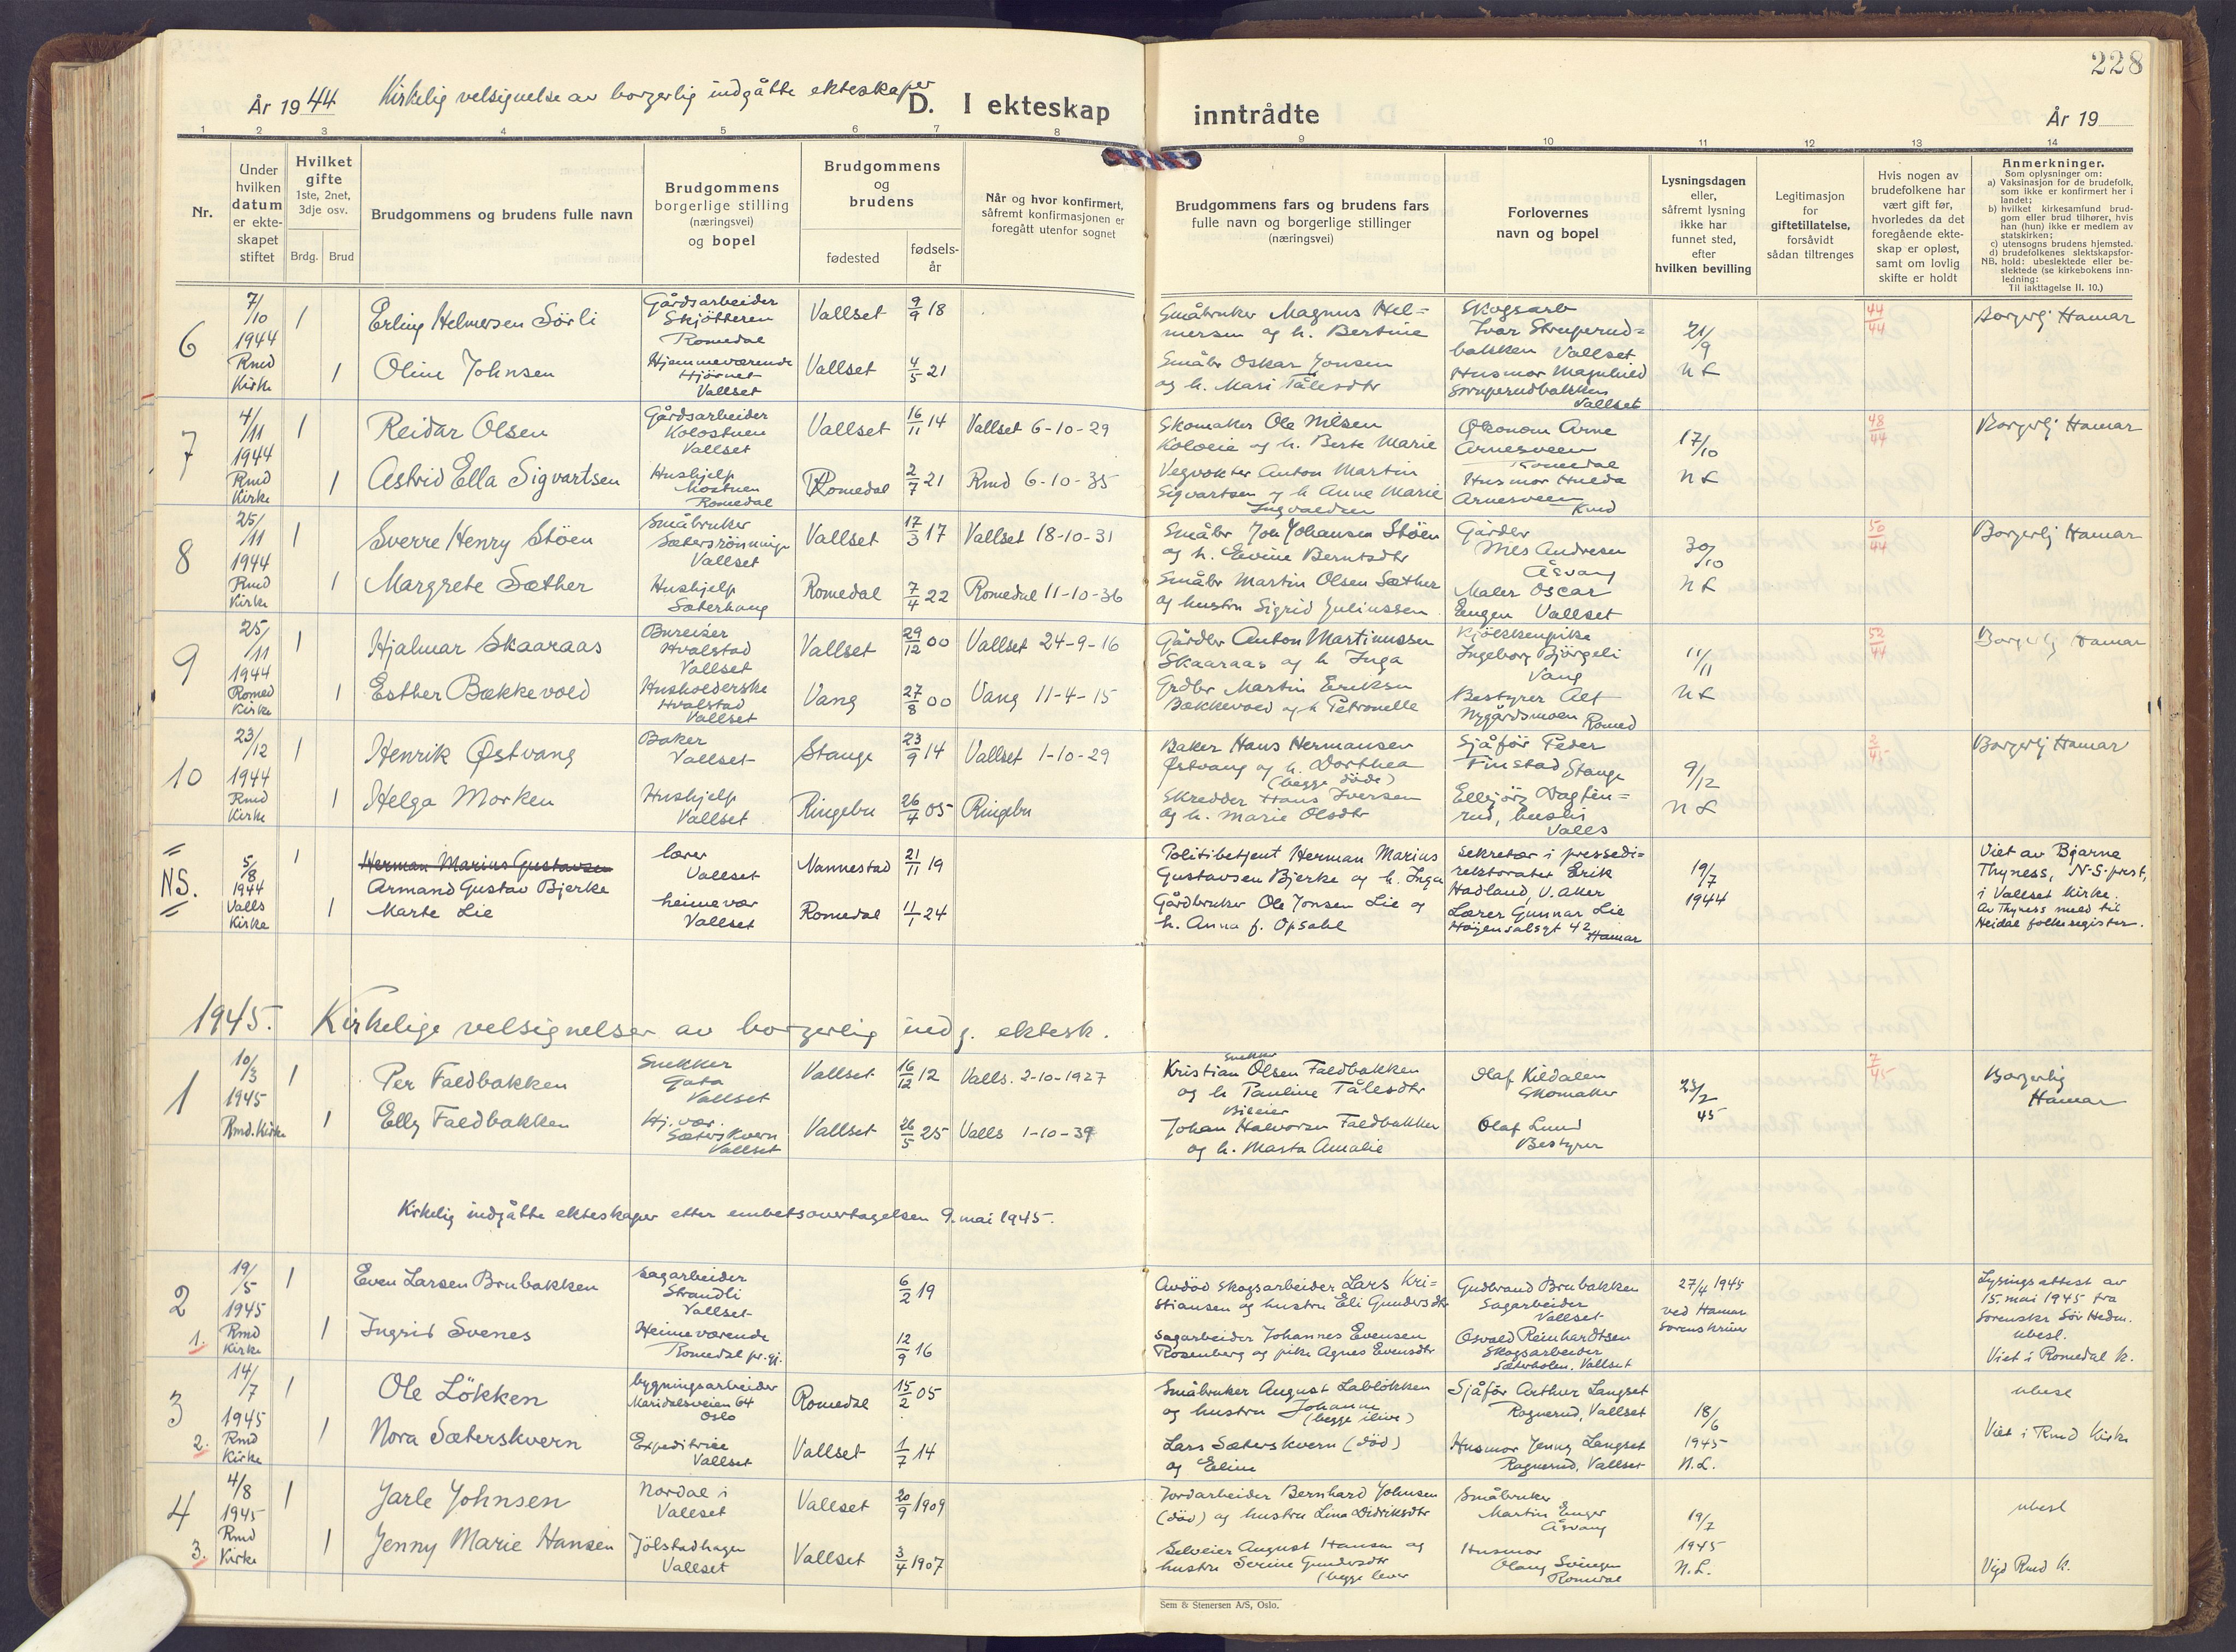 228
År 1944 Kirkelig velsignelse av borgerlig indgåtte ekteskaper D. I ekteskap inntrådte År 19
1 2 3 4 5 6 7 8 9 10 11 12 13 14
Nr.
Under
hvilken
datum
er ekte-
skapet
stiftet
Hvilket
gifte
1ste, 2net,
3dje osv.
Brdg. Brud
Brudgommens og brudens fulle navn
Brudgommens
borgerlige stilling
(næringsvei)
og bopel
Brudgommens
og
brudens
fødested
fødsels-
år
Når og hvor konfirmert,
såfremt konfirmasjonen er
foregått utenfor sognet
Brudgommens fars og brudens fars
fulle navn og borgerlige stillinger
(næringsvei)
Forlovernes
navn og bopel
Lysningsdagen
eller,
såfremt lysning
ikke har
funnet sted,
efter
hvilken bevilling
Legitimasjon
for
giftetillatelse,
forsåvidt
sådan tiltrenges
Hvis nogen av
brudefolkene har
vært gift før,
hvorledes da det
foregående ekte-
skap er opløst,
samt om lovlig
skifte er holdt
Anmerkninger.
Som oplysninger om:
a) Vaksinasjon for de brudefolk,
som ikke er konfirmert her i
landet;
b) hvilket kirkesamfund brud-
gom eller brud tilhører, hvis
han (hun) ikke er medlem av
statskirken;
c) utensogns brudens hjemsted.
d) brudefolkenes slektskapsfor-
NB. hold: ubeslektede eller be-
slektede (se kirkebokens inn-
ledning:
Til iakttagelse II. 10.)
6
7/10
1944
Rmd
Kirke
1
Erling Helmersen Sörli
Gårdsarbeider
Skjötteren
Romedal
Vallset
9/9 18
Småbruker Magnus Hel=
mersen og h. Bertine
Skogsarb
Ivar Struperud=
bakken Vallset
21/9
44/44
Borgerlj Hamar
1
Oline Johnsen
Hjemmeværende
Hjörnet
Vallset
Vallset
4/5 21
Småbr Oskar Jonsen
og h. Mari Tålesdtr
Husmor Magnhild
Struperudbakken
Vallset
N L
7
4/11
1944
Rmd
Kirke
1
Reidar Olsen
Gårdsarbeider
Kolostuen
Vallset
Vallset
16/11 14
Vallset 6-10-29
Skomaker Ole Nilsen
Koloeie og h. Berte Marie
Økonom Arne
Arnesveen
Romedal
17/10
48/44
Borgerlj Hamar
1
Astrid Ella Sigvartsen
Hushjelp
Mostuen
Romedal
Romedal
2/7 21
Rmd 6-10-35
Vegvokter Anton Martin
Sigvartsen og h Anne Marie
Ingvaldsen
Husmor Hulda
Arnesveen
Rmd
N L
8
25/11
1944
Rmd
Kirke
1
Sverre Henry Stöen
Småbruker
Vallset
Vallset
17/3 17
Vallset 18-10-31
Småbr Joh Johansen Stöen
og h. Evine Berntsdtr
Gårdbr
Nils Andresen
Åsvang
30/10
50/44
Borgerlj Hamar
1
Margrete Sæther
Hushjelp
Sæterhaug
Romedal
7/4 22
Romedal 11-10-36
Småbr Martin Olsen Sæther
og hustru Sigrid Juliussen
Maler Oscar
Engen Vallset
N L
9
25/11
1944
Romed
Kirke
1
Hjalmar Skaaraas
Bureiser
Hvalstad
Vallset
Vallset
29/12 00
Vallset 24-9-16
Gårdbr Anton Martinussen
Skaaraas og h Inga
Kjökkenpike
Ingeborg Björgeli
Vang
11/11
52/44
Borgerlj Hamar
1
Esther Bækkevold
Husholderske
Hvalstad
Vallset
Vang
27/8 00
Vang 11-4-15
Grdbr Martin Eriksen
Bækkevold og h Petronelle
Bestyrer Alf
Nygårdsmoen Romed
N L
10
23/12
1944
Rmd
Kirke
1
Henrik Østvang
Baker
Vallset
Stange
23/9 14
Vallset 1-10-29
Baker Hans Hermansen
Østvang og h. Dorthea
(begge döde)
Sjåför Peder
Finstad Stange
9/12
2/45
Borgerlj Hamar
1
Helga Morken
Hushjelp
Vallset
Ringebu
26/7 05
Ringebu
Skredder Hans Iversen
og h. Marie Olsdtr
Ellbjörg Dagfin=
rud, husbst
Valls
N L
NS.
5/8
1944
Valls
Kirke
1
Herman Marius Gustavsen
Armand Gustav Bjerke
lærer
Vallset
Nannestad
21/11 19
Politibetjent Herman Marius
Gustavsen Bjerke og h. Inga
Sekretær i pressedi=
rektoratet Erik
Hadland, V. Aker
19/7
1944
Viet av Bjarne
Thyness, N-S-prest,
i Vallset Kirke.
Av Thyness meld til
Heidal folkeregister.
1
Marte Lie
heimevær
Vallset
Romedal
11/1 24
Gårdbruker Ole Jonsen Lie og
h. Anna f. Opsahl
Lærer Gunnar Lie
Höiensalsgt 42
Hamar
1945. Kirkelige velsignelser av borgerlig indg. ektesk.
1
10/3
1945
Rmd. Kirke
1
Per Faldbakken
Snekker
Gata
Vallset
Vallset
16/12 12
Valls. 2-10-1927
Snekker
Kristian Olsen Faldbakken
og h Pauline Tålesdtr
Olaf Kildalen
Skomaker
23/2
45
7/45
Borgerlig
Hamar
1
Elly Faldbakken
Hj. vær.
Sæterskvern
Vallset
Vallset
26/5 25
Valls 1-10-39
Bileier
Johan Halvorsen Faldbakken
og h. Marta Amalie
Olaf Lund
Bestyrer
Kirkelig indgåtte ekteskaper etter embetsovertagelsen 9. mai 1945.
2
1.
19/5
1945
Rmd
Kirke
1
Even Larsen Brubakken
Sagarbeider
Strandli
Vallset
6/2 19
Avdöd skogsarbeider Lars Kri=
stiansen og hustru Eli Gundersdtr
Gudbrand Brubakken
Sagarbeider
Vallset
27/4 1945
ved Hamar
Sorenskriver
Lysingsattest av
15. mai 1945 fra
Sorenskr Sör Hedm.
ubesl.
Viet i Romedal k.
1
Ingrid Svenes
Heimeværende
Romedal pr. gj.
12/9 16
Sagarbeider Johannes Evensen
Rosenberg og pike Agnes Evensdtr
Osvald Reinhardtsen
Skogsarbeider
Sæterholen, Vallset
3
2.
14/7
1945
Rmd
Kirke
1
Ole Lökken
bygningsarbeider
Maridalsveien 64
Oslo
Romedal
15/2 05
Småbruker August Lablökken
og hustru Johanne
(begge ilive)
Sjåför Arthur Langset
Ragnerud, Vallset
18/6
1945
N.L.
ubesl
Viet i Rmd Kirke
1
Nora Sæterskvern
Expeditrise
Vallset
Vallset
1/7 14
Lars Sæterskvern (död)
og Eline
Husmor Jenny Langset
Ragnerud, Vallset
4
3.
4/8
1945
Rmd
Kirke
1
Jarle Johnsen
Nordal i
Vallset
Vallset
20/9 1909
Jordarbeider Bernhard Johnsen
(död) og hustru Lina Didriksdtr
Småbruker
Martin Enger
Åsvang
19/7
1945
N.L.
ubesl
Vigd Rmd K.
1
Jenny Marie Hansen
Jölstadhagen
Vallset
Vallset
3/4 1907
Selveier August Hansen og
hustru Severine Gundersdtr
(begge lever
Husmor
Olaug Svingen
Romedal
Sem & Stenersen A/S, Oslo.